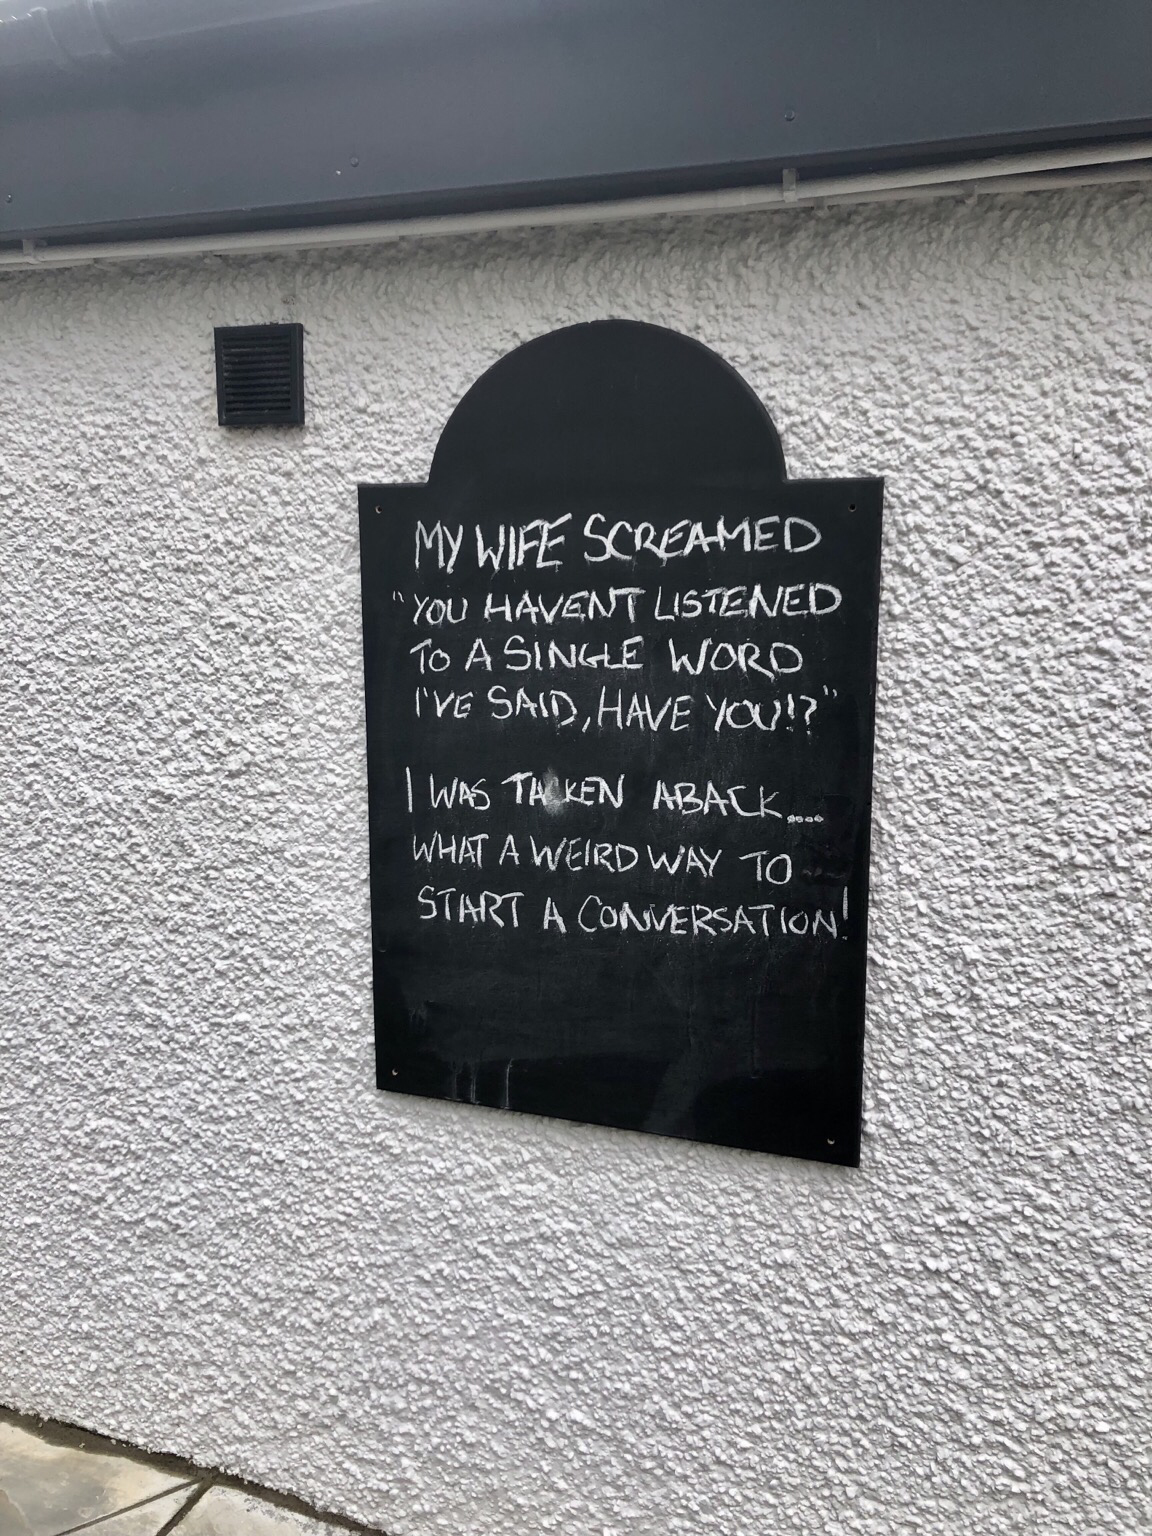 MY WIFE SCREAMED
"YOU HAVENT LISTENED
TO A SINGLE WORD
I'VE SAID, HAVE YOU!?"
I WAS TAKEN ABACK....
WHAT A WEIRD WAY TO
START A CONVERSATION!